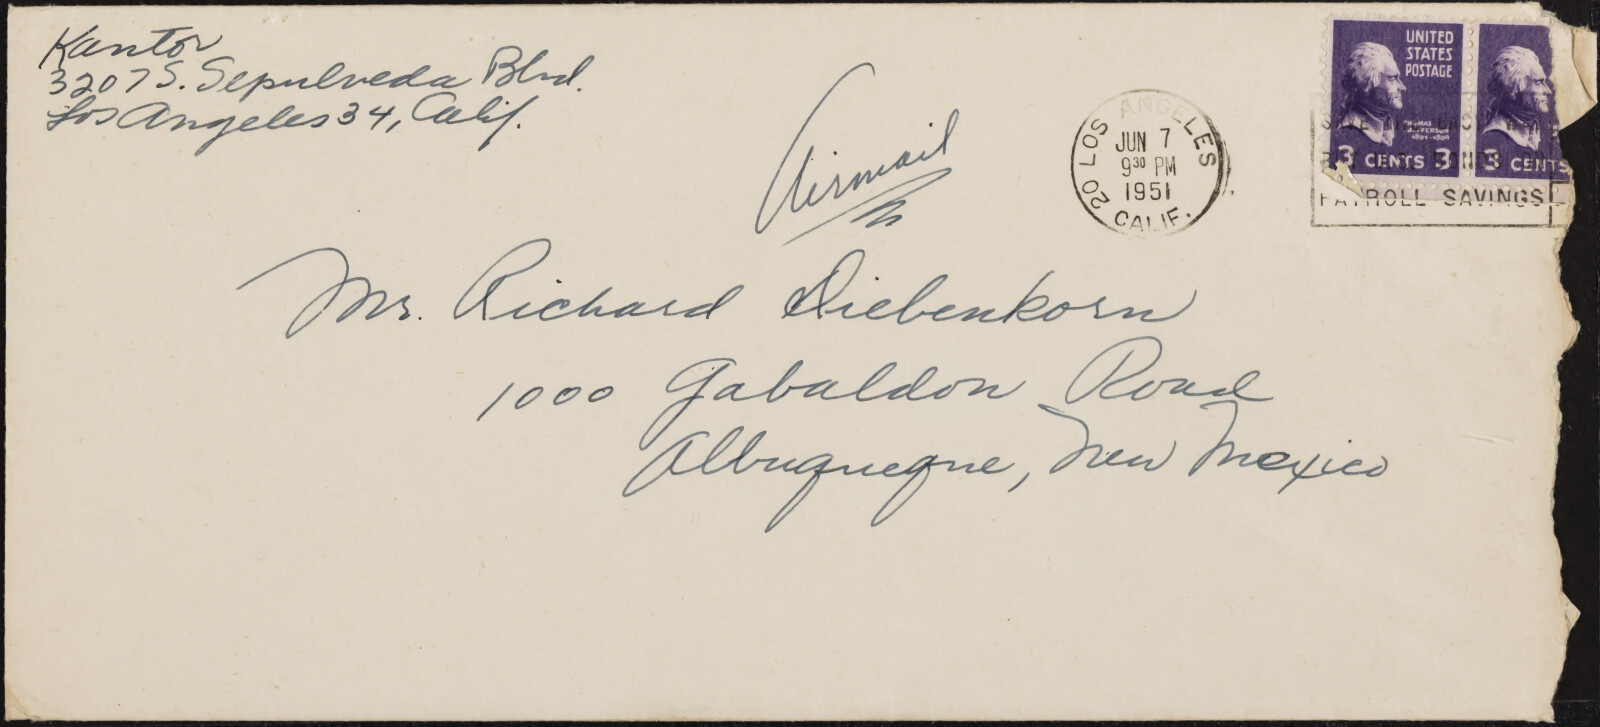 Kantor
3207 S. Sepulveda Blvd.
Los Angeles 34, Calif.
Airmail
LOS ANGELES
20
JUN 7
9 30 PM
1951
CALIF.
UNITED
STATES
POSTAGE
THOMAS
JEFFERSON
1801-1809
3 CENTS 3
3 CENTS
PAYROLL SAVINGS
Mr. Richard Diebenkorn
1000 Gabaldon Road
Albuquerque, New Mexico